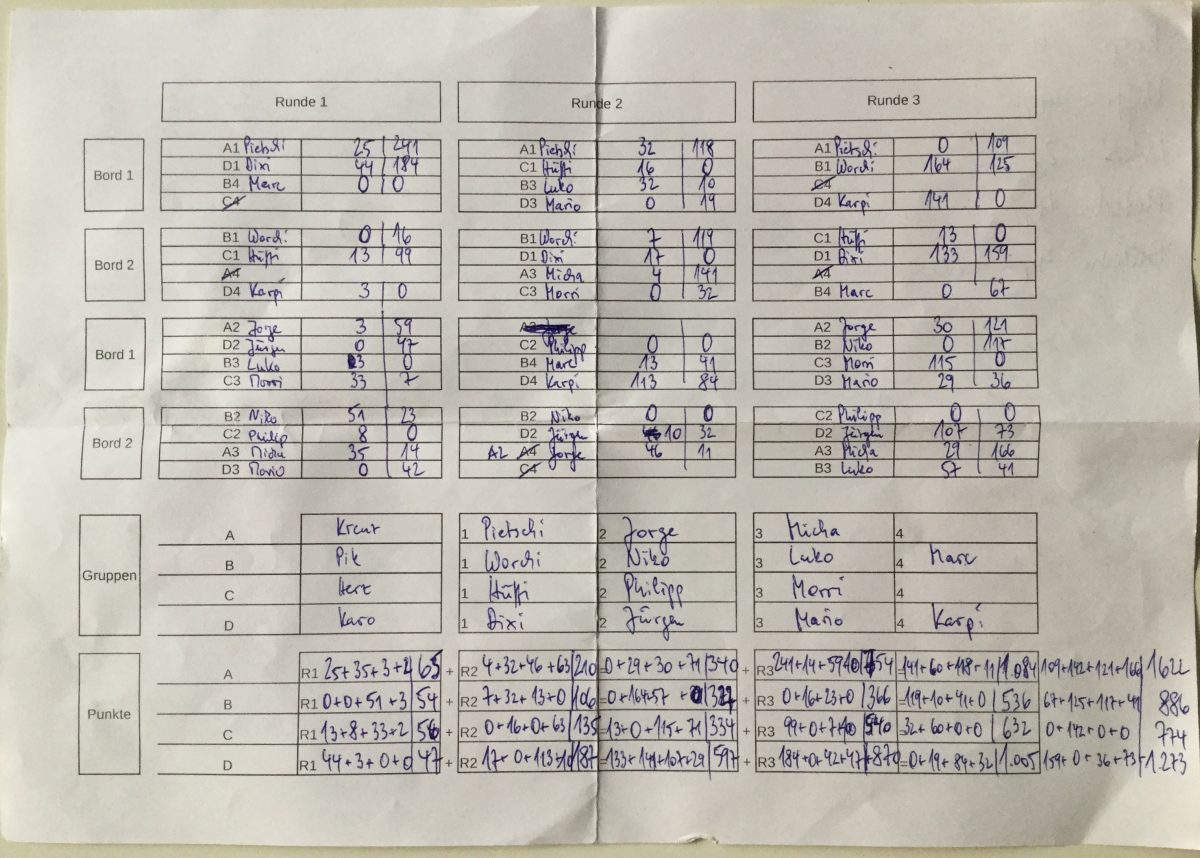 Runde 1 Runde 2 Runde 3
Bord 1
A1 Pietschi 25 241 A1 Pietschi 32 118 A1 Pietschi 0 109
D1 Dixi 44 184 C1 Hüffi 16 0 B1 Worchi 164 125
B4 Marc 0 0 B3 Luko 32 10 C4
C4 D3 Mario 0 19 D4 Karpi 141 0
Bord 2
B1 Worchi 0 16 B1 Worchi 7 119 C1 Hüffi 13 0
C1 Hüffi 13 99 D1 Dixi 17 0 D1 Dixi 133 159
A4 A3 Micha 4 141 A4
D4 Karpi 3 0 C3 Morri 0 32 B4 Marc 0 67
Bord 1
A2 Jorge 3 59 A2 Jorge A2 Jorge 30 121
D2 Jürgen 0 47 C2 Philipp 0 0 B2 Niko 0 117
B3 Luko 3 0 B4 Marc 13 41 C3 Morri 115 0
C3 Morri 33 7 D4 Karpi 113 84 D3 Mario 29 36
Bord 2
B2 Niko 51 23 B2 Niko 0 0 C2 Philipp 0 0
C2 Philip 8 0 D2 Jürgen 10 32 D2 Jürgen 107 73
A3 Micha 35 14 A2 A4 Jorge 46 11 A3 Micha 29 166
D3 Mario 0 42 C4 B3 Luko 57 41
Gruppen
A Kreuz 1 Pietschi 2 Jorge 3 Micha 4
B Pik 1 Worchi 2 Niko 3 Luko 4 Marc
C Herz 1 Hüffi 2 Philipp 3 Morri 4
D Karo 1 Dixi 2 Jürgen 3 Mario 4 Karpi
Punkte
A R1 25+35+3+2 65 + R2 4+32+46+63 210 =0+29+30+71 340 + R3 241+14+59+0 754 =141+60+118+11 1.084 109+142+121+166 1622
B R1 0+0+51+3 54 + R2 7+32+13+0 106 =0+164+57+0 327 + R3 0+16+23+0 366 =119+10+41+0 536 67+125+117+41 886
C R1 13+8+33+2 56 + R2 0+16+0+63 135 =13+0+115+71 334 + R3 99+0+7+0 540 =32+60+0+0 632 0+142+0+0 774
D R1 44+3+0+0 47 + R2 17+0+113+10 187 =133+141+107+29 597 + R3 184+0+42+47 870 =0+19+84+32 1.005 159+0+36+73 1.273